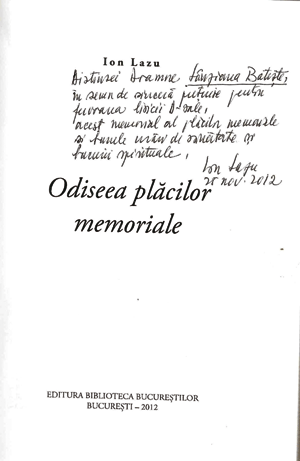 Ion Lazu
Distinsei Doamne Sânziana Batiște,
în semn de sinceră prețuire pentru
liricii D-sale,
acest memorial al plăcilor memoriale
și bunele urări de sănătate și
bucurii spirituale,
Ion Lazu
25 nov. 2012
Odiseea plăcilor
memoriale
EDITURA BIBLIOTECA BUCUREȘTILOR
BUCUREȘTI – 2012